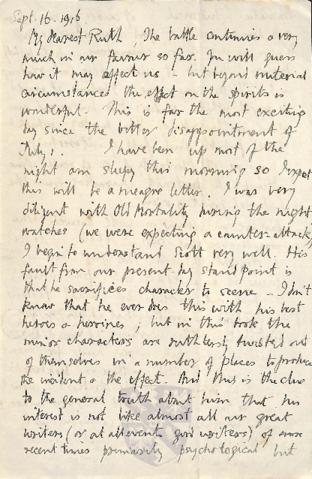 Sept. 16. 1916
My Dearest Ruth, The battle continues very
much in our favour so far. You will guess
how it may affect us – but beyond material
circumstances the effect on the spirits is
wonderful. This is far the most exciting
day since the bitter disappointment of
July 1. I have been up most of the
night am sleepy this morning so I expect
this will be a meagre letter. I was very
diligent with Old Mortality during the night
watches (we were expecting a counter-attack)
I begin to understand Scott very well. His
fault from our present day standpoint is
that he sacrifices character to scene – I don't
know that he ever does this with his best
heroes & heroines; but in this book the
minor characters are ruthlessly twisted out
of themselves in a number of places to produce
the incident & the effect. And this is the clue
to the general truth about him that his
interest is not like almost all our great
writers (or at all events good writers) of more
recent times primarily psychological but